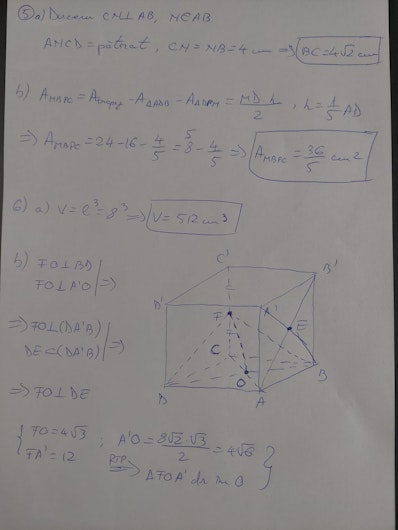 ⑤ a) Ducem CN⊥AB, N∈AB
ANCD = pătrat, CN = NB = 4 cm ⇒ BC = 4√2 cm
b) A_MBPC = A_trapez − A_ΔADB − A_ΔDPM = MD·h/2, h = 1/5 AD
⇒ A_MBPC = 24 − 16 − 4/5 = 8 − 4/5 ⇒ A_MBPC = 36/5 cm²
6) a) V = l³ = 8³ ⇒ V = 512 cm³
b) FO⊥BD
FO⊥A'O | ⇒
⇒ FO⊥(DA'B)
DE⊂(DA'B) | ⇒
⇒ FO⊥DE
{ FO = 4√3
FA' = 12 ; A'O = 8√2·√3/2 = 4√6
RTP ⇒ ΔFOA' dr. în O }
C'
B'
D'
A'
F
E
C
O
B
D
A